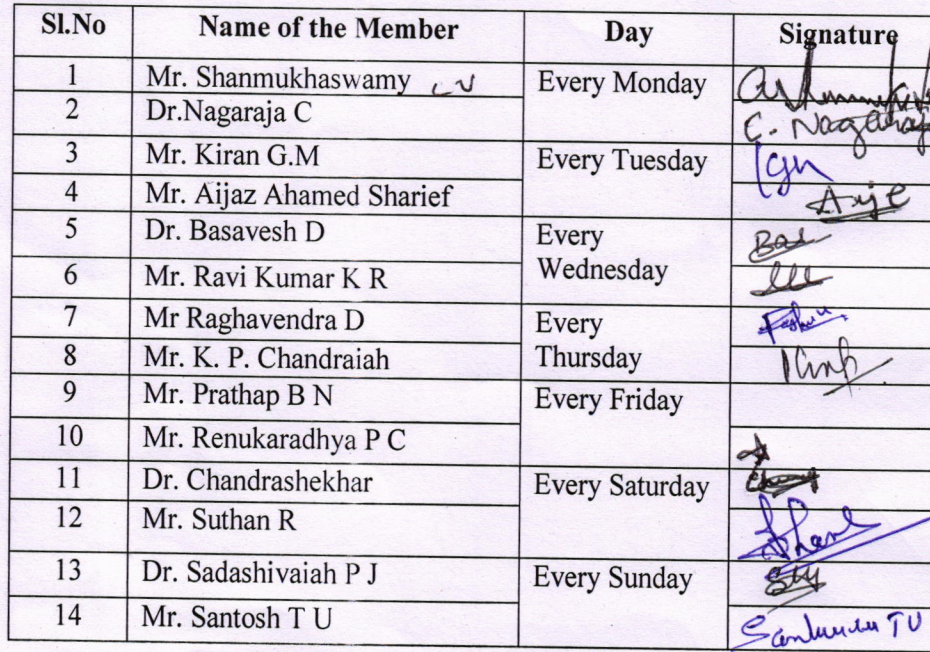 Sl.No Name of the Member Day Signature
1 Mr. Shanmukhaswamy Every Monday
2 Dr.Nagaraja C C. Nagaraj
3 Mr. Kiran G.M Every Tuesday
4 Mr. Aijaz Ahamed Sharief
5 Dr. Basavesh D Every
6 Mr. Ravi Kumar K R Wednesday
7 Mr Raghavendra D Every
8 Mr. K. P. Chandraiah Thursday
9 Mr. Prathap B N Every Friday
10 Mr. Renukaradhya P C
11 Dr. Chandrashekhar Every Saturday
12 Mr. Suthan R
13 Dr. Sadashivaiah P J Every Sunday
14 Mr. Santosh T U